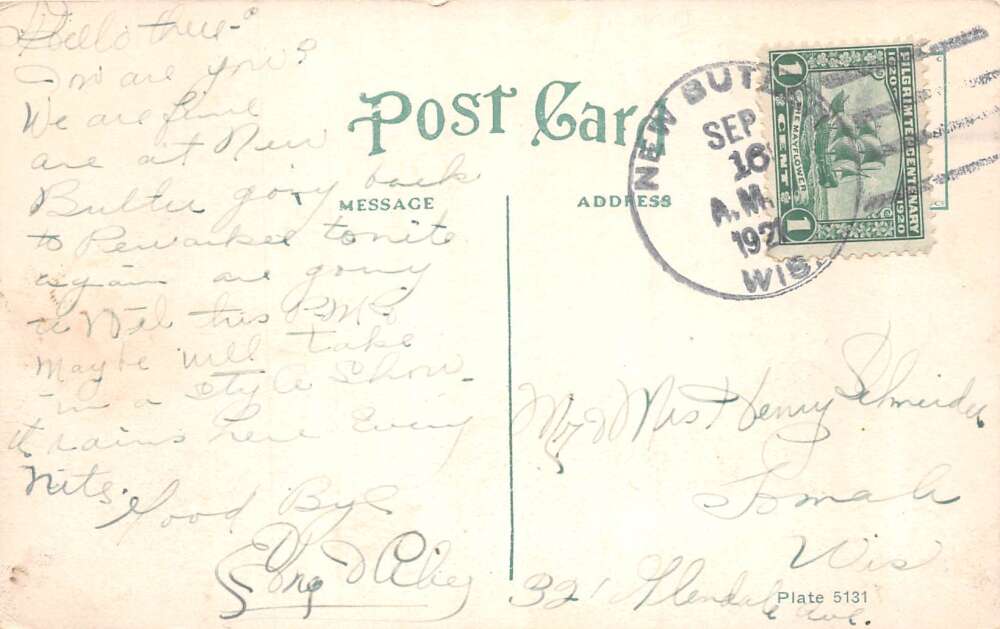 Hello there-
How are you?
We are fine
are at New
Butler going back
to Pewaukee tonite
again are going
to Mil this P.M.
Maybe will take
in a style Show
It rains here Every
nite.
Good Bye
Post Card
MESSAGE
ADDRESS
NEW BUTLER
SEP
16
A.M.
192
WIS.
PILGRIM TERCENTENARY
1620 1920
THE MAYFLOWER
1 CENT 1
Mr & Mrs Henry Schneider
Tomah
Wis
321 Glendale Ave.
Plate 5131